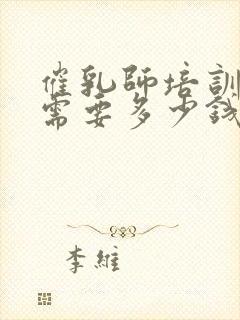 催乳師培訓
需要多少錢
李維